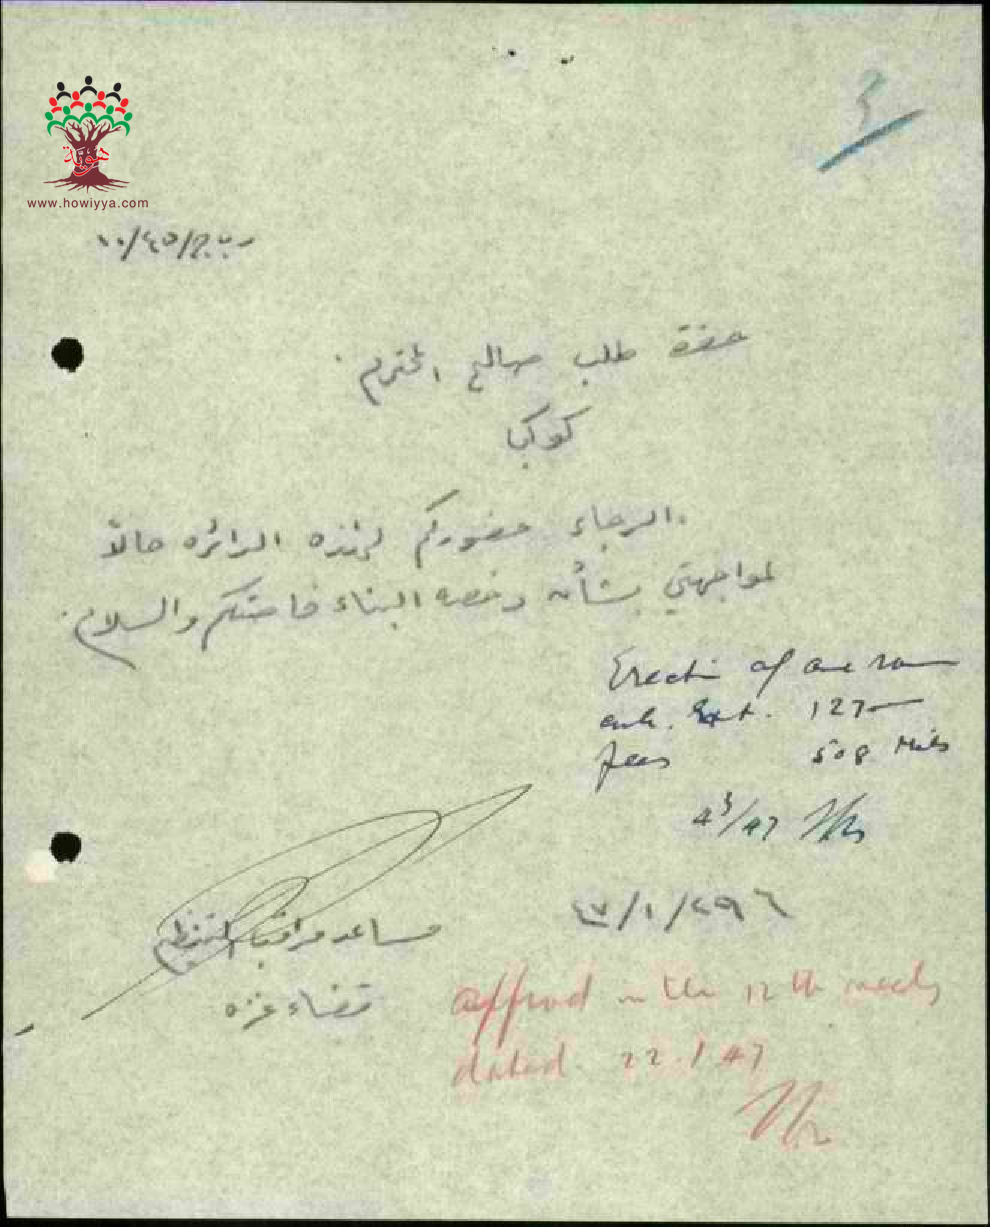 هوية
www.howiyya.com
ر ب ج/٤٥/١٠
حضرة طلب صالح المحترم
كوكبا
الرجاء حضوركم لهذه الدائره حالاً
لمواجهتي بشأن رخصة البناء خاصتكم والسلام
Erection of one room
127
fees 508 Mils
47
٤٧/١/٢٩
مساعد مراقب التنظيم
قضاء غزه
approved in the 12th
dated 22.1.47